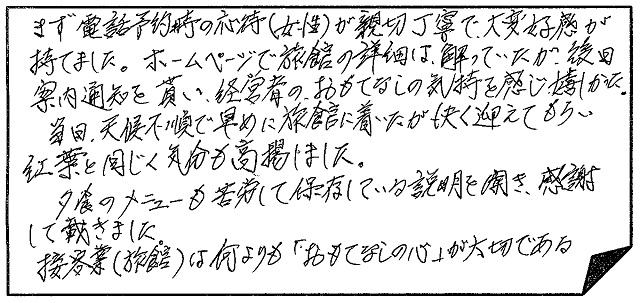 まず電話予約時の応待(女性)が親切丁寧で、大変好感が
持てました。ホームページで旅館の詳細は、解っていたが、後日
案内通知を貰い、経営者の、おもてなしの気持を感じ嬉しかった。
当日、天候不順で早めに旅館に着いたが快く迎えてもらい
紅葉と同じく気分も高揚しました。
夕食のメニューも苦労して保存している説明を聞き、感謝
して戴きました
接客業(旅館)は何よりも「おもてなしの心」が大切である